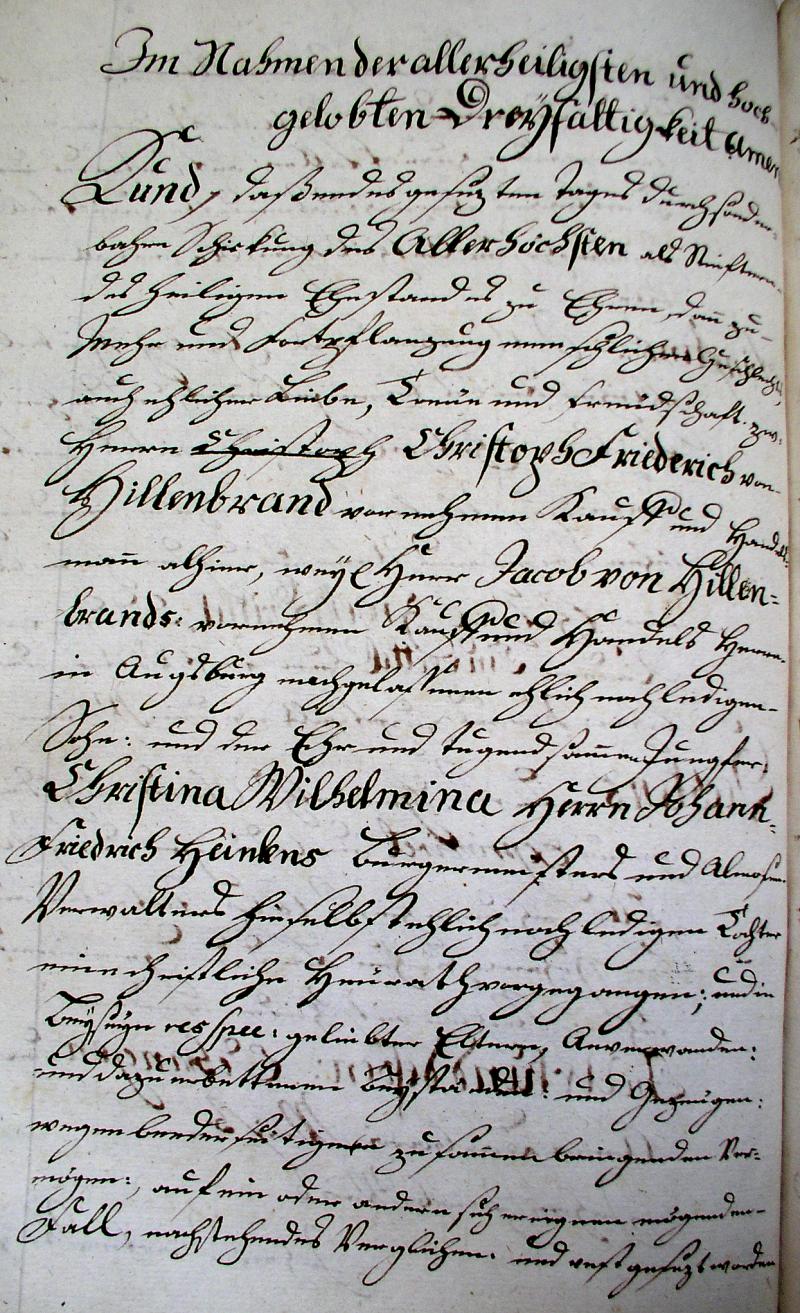 Im Nahmen der allerheiligsten und hoch
gelobten Dreyfaltigkeit Amen
Kund, daß endesgesezten Tages durch sonder-
bahre Schickung des Allerhöchsten als Stifters
des heiligen Ehestandes zu Ehren, dan zu-
Mehr und Fortpflanzung menschlichen Geschlechts,
auch ehlicher Liebe, Treüe und Freüdschaft, zw:
Herrn Christoph Christoph Friederich von
Hillenbrand vornehmen Kauff und Handels-
mann alhier, weyl Herr Jacob von Hillen-
brands: vornehmen Kauff und Handels Herrn
in Augsburg nachgelassenen ehlich noch ledigen
Sohn: und der Ehr und tugendsamen Jungfer,
Christina Wilhelmina Herrn Johann
Friedrich Heinkens Burgermeisters und Almosen
Verwalters hieselbst ehlich noch ledigen Tochter
eine christliche Heürath vorgegangen; und in
Beyseyn respee: geliebter Eltern, Anverwanden:
und dazu erbettenen Beyständen: und Gezeugen:
wegen beederseitigen zusammenbringenden Ver-
mögen:, auf ein oder andern sich ereignen mögenden-
Fall, nachstehendes Verglichen: und vest gesezt worden